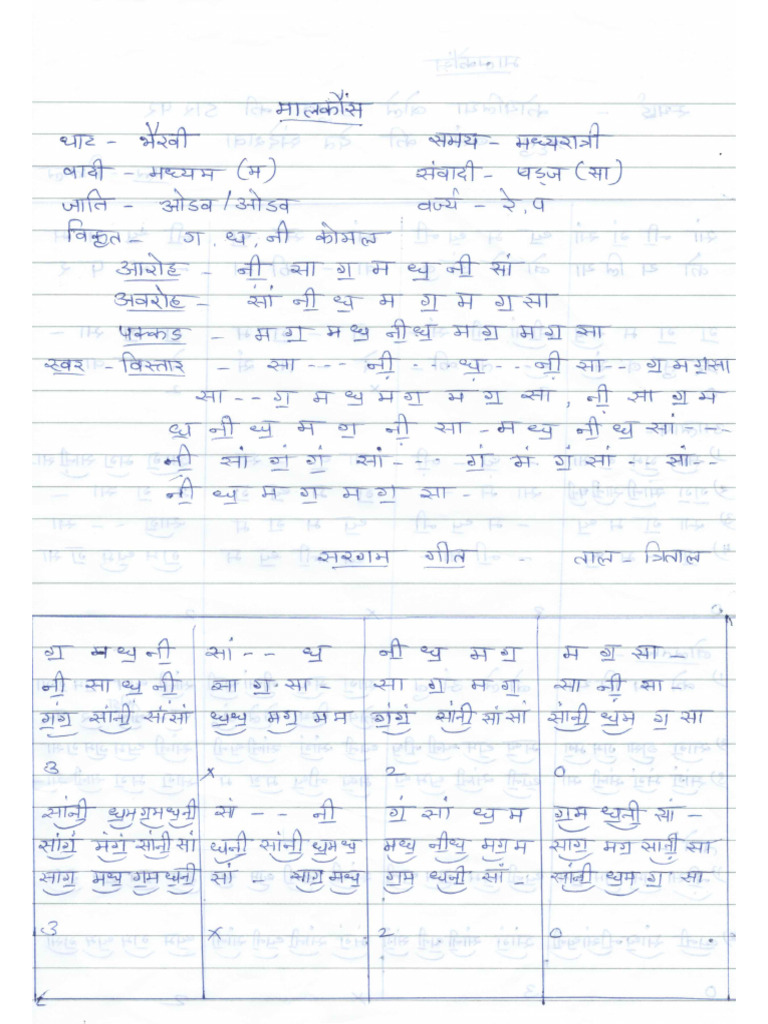 मालकौंस
थाट - भैरवी समय - मध्यरात्री
वादी - मध्यम (म) संवादी - षड्ज (सा)
जाति - ओडव / ओडव वर्ज्य - रे, प
विकृत - ग॒, ध॒, नी॒ कोमल
आरोह - नी॒ सा ग॒ म ध॒ नी॒ सां
अवरोह - सां नी॒ ध॒ म ग॒ म ग॒ सा
पक्कड - म ग॒ म ध॒ नी॒ ध॒ म ग॒ म ग॒ सा
स्वर - विस्तार - सा --- नी॒ -- ध॒ --- नी॒ सा -- ग॒ म ग॒ सा
सा -- ग॒ म ध॒ म ग॒ म ग॒ सा, नी॒ सा ग॒ म
ध॒ नी॒ ध॒ म ग॒ नी॒ सा - म ध॒ नी॒ ध॒ सां ---
नी॒ सां गं॒ गं॒ सां -- गं॒ मं गं॒ सां सां --
नी॒ ध॒ म ग॒ म ग॒ सा -
सरगम गीत - ताल - त्रिताल
ग॒ म ध॒ नी॒ सां - - ध॒ नी॒ ध॒ म ग॒ म ग॒ सा -
नी॒ सा ध॒ नी॒ सा ग॒ सा - सा ग॒ म ग॒ सा नी॒ सा -
गं॒गं॒ सांनी॒ सांसां ध॒ध॒ मग॒ म म गं॒गं॒ सांनी॒ सांसां सांनी॒ ध॒म ग॒ सा
3 x 2 0
सांनी॒ ध॒मग॒मध॒नी॒ सां - - नी॒ गं॒ सां ध॒ म ग॒म ध॒नी॒ सां -
सांगं॒ मंगं॒ सांनी॒ सां ध॒नी॒ सांनी॒ ध॒मध॒ मध॒ नी॒ध॒ मग॒ म साग॒ मग॒ सानी॒ सा
साग॒ मध॒ ग॒मध॒नी॒ सां - - साग॒मध॒ ग॒म ध॒नी॒ सां - सांनी॒ ध॒म ग॒ सा
3 x 2 0